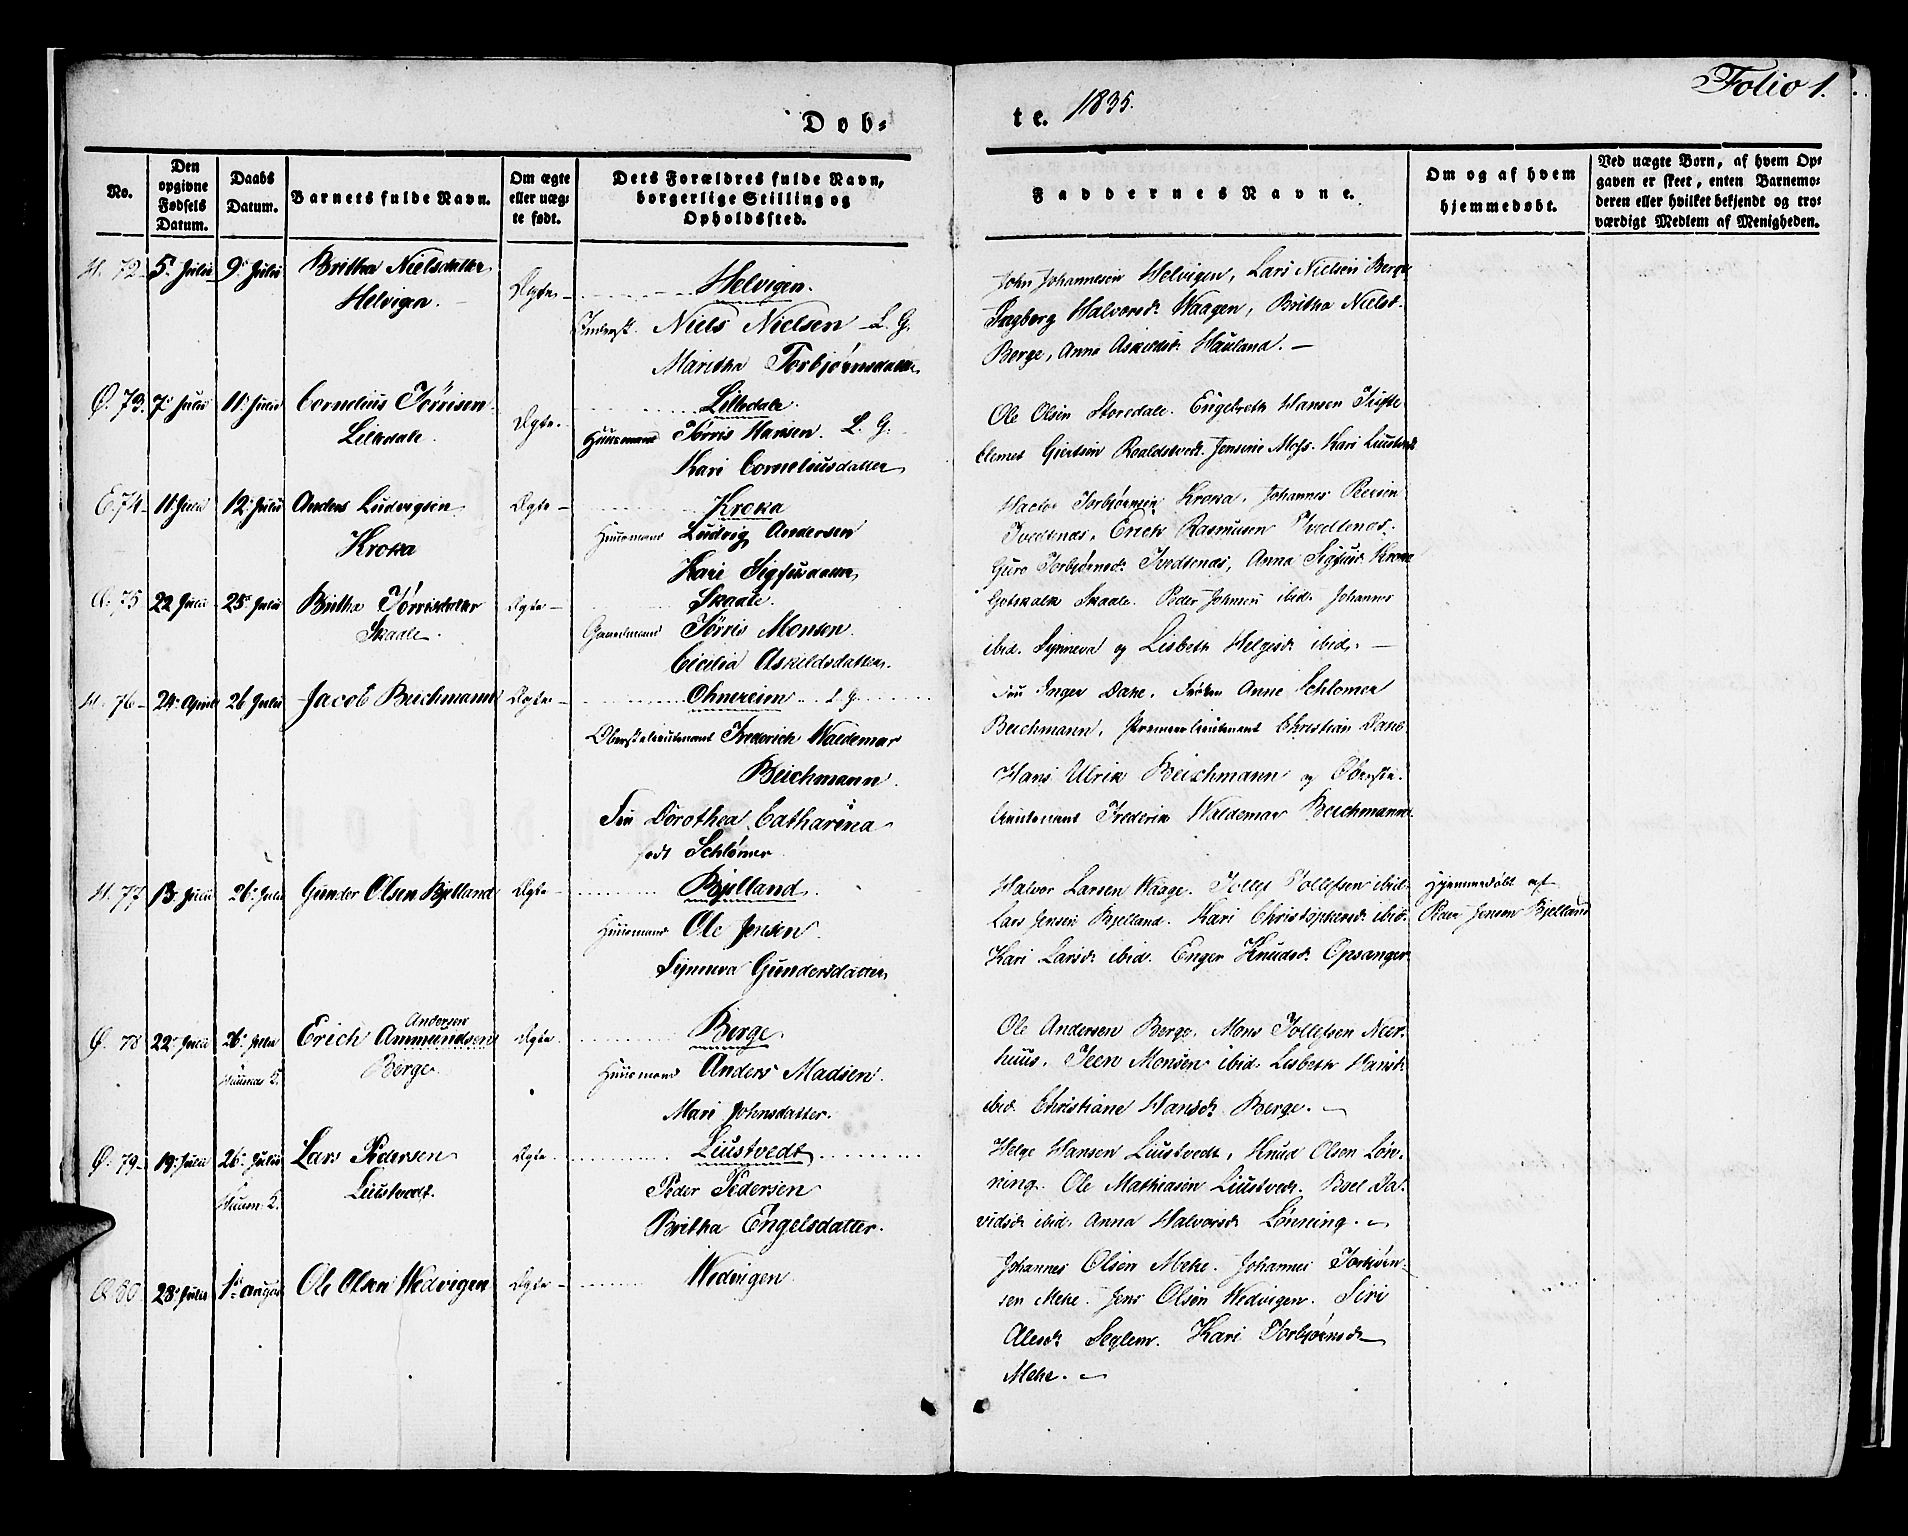 Folio 1.
Døb=
te. 1835.
No.
Den opgivne Fødsels Datum.
Daabs Datum.
Barnets fulde Navn.
Om ægte eller uægte født.
Dets Forældres fulde Navn, borgerlige Stilling og Opholdssted.
Faddernes Navne.
Om og af hvem hjemmedøbt.
Ved uægte Børn, af hvem Opgaven er skeet, enten Barnemoderen eller hvilket bekjendt og troværdigt Medlem af Menigheden.
72. 5. Julii 9. Julii Britha Nielsdatter
Helvigen.
Ægte
Helvigen.
Inderst. Niels Nielsen L. G.
Maritha Torbjørnsdatter
John Johannesen Helvigen, Lars Nielsen Berge
Ingborg Halvorsd. Waagen, Britha Nielsd.
Berge, Anna Askildsd. Hauland.
73. 7. Julii 11. Julii Cornelius Tørrisen
Liledale.
Ægte.
Liledale.
Huusmand Tørris Hansen. L. G.
Kari Corneliusdatter
Ole Olsen Storedale. Engelbreth Hansen Tufte
Clemet Giertsen Roaldstvedt. Jensine Moss. Kari Liustvedt
74 11 Julii 12. Julii Anders Ludvigsen
Kroka
Ægte
Kroka
Huusmand Ludvig Andersen
Kari Sigfusdatter
Torbjørnsen Kroka, Johannes Peersen
Tvedtenæs, Erich Rasmusen Tvedtenæs.
Guro Torbjørnsd. Tvedtenæs, Anna Sigfusd. Kroka
75 22 Julii 25. Julii Britha Tørrisdatter
Skaale.
Ægte
Skaale.
Gaardmand Tørris Monsen.
Cicilia Askildsdatter.
Gotskalk Skaale. Peder Johnsen ibid. Johannes
ibid. Synneva og Lisbeth Helgesd. ibid.
76 24. April 26 Julii Jacob Beichmann
Ægte
L. G.
Oberstelieutenant Frederich Waldemar
Beichmann.
Fru Dorothea Catharina
født Schlømer
Fru Inger Dahl. Frøken Anne Schlømer
Beichmann, Premierlieutenant Christian Dahl
Hans Ulrik Beichmann og Oberste-
lieutenant Frederik Waldemar Beichmann
77 13. Julii 26. Julii Gunder Olsen Bjelland
Ægte
Bjelland.
Huusmand Ole Jensen.
Synneva Gundersdatter
Halvor Larsen Waage. Tollef Tollefsen ibid.
Lars Jensen Bjelland. Kari Christophersd. ibid.
Kari Larsd. ibid. Enger Knudsd. Opsanger
Hjemmedøbt af
Peder Jensen Bjelland
78 22. Julii 26. Julii Erich Ammundsen
Andersen
Berge
Ægte.
Berge
Huusmand Anders Madsen.
Mari Johnsdatter.
Ole Andersen Berge. Mons Tollefsen Neer-
huus. Teen Monsen ibid. Lisbeth Hansd.
ibid. Christiane Hansd. Berge.
79 19. Julii 26. Julii Lars Pedersen
Liustvedt.
Ægte.
Liustvedt
Peder Pedersen
Britha Engelsdatter.
Helge Hansen Liustvedt, Knud Olsen Løn-
ning. Ole Mathiasen Liustvedt. Boel Da-
vidsd. ibid. Anna Halvorsd. Lønning.
80 28. Julii 1. August Ole Olsen Wedvigen
Ægte
Wedvigen
Johannes Olsen Mehe. Johannes Torbjørn-
sen Mehe. Jens Olsen Wedvigen. Siri
Olesd. Seglem. Kari Torbjørnsd.
Mehe.